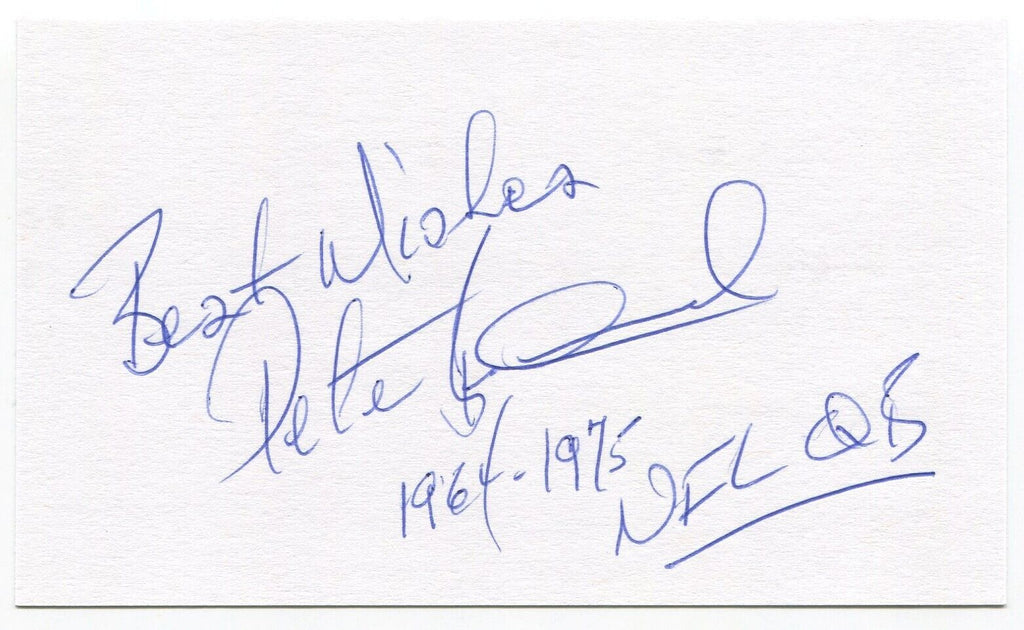 Best Wishes
Pete
1964-1975
NFL QB